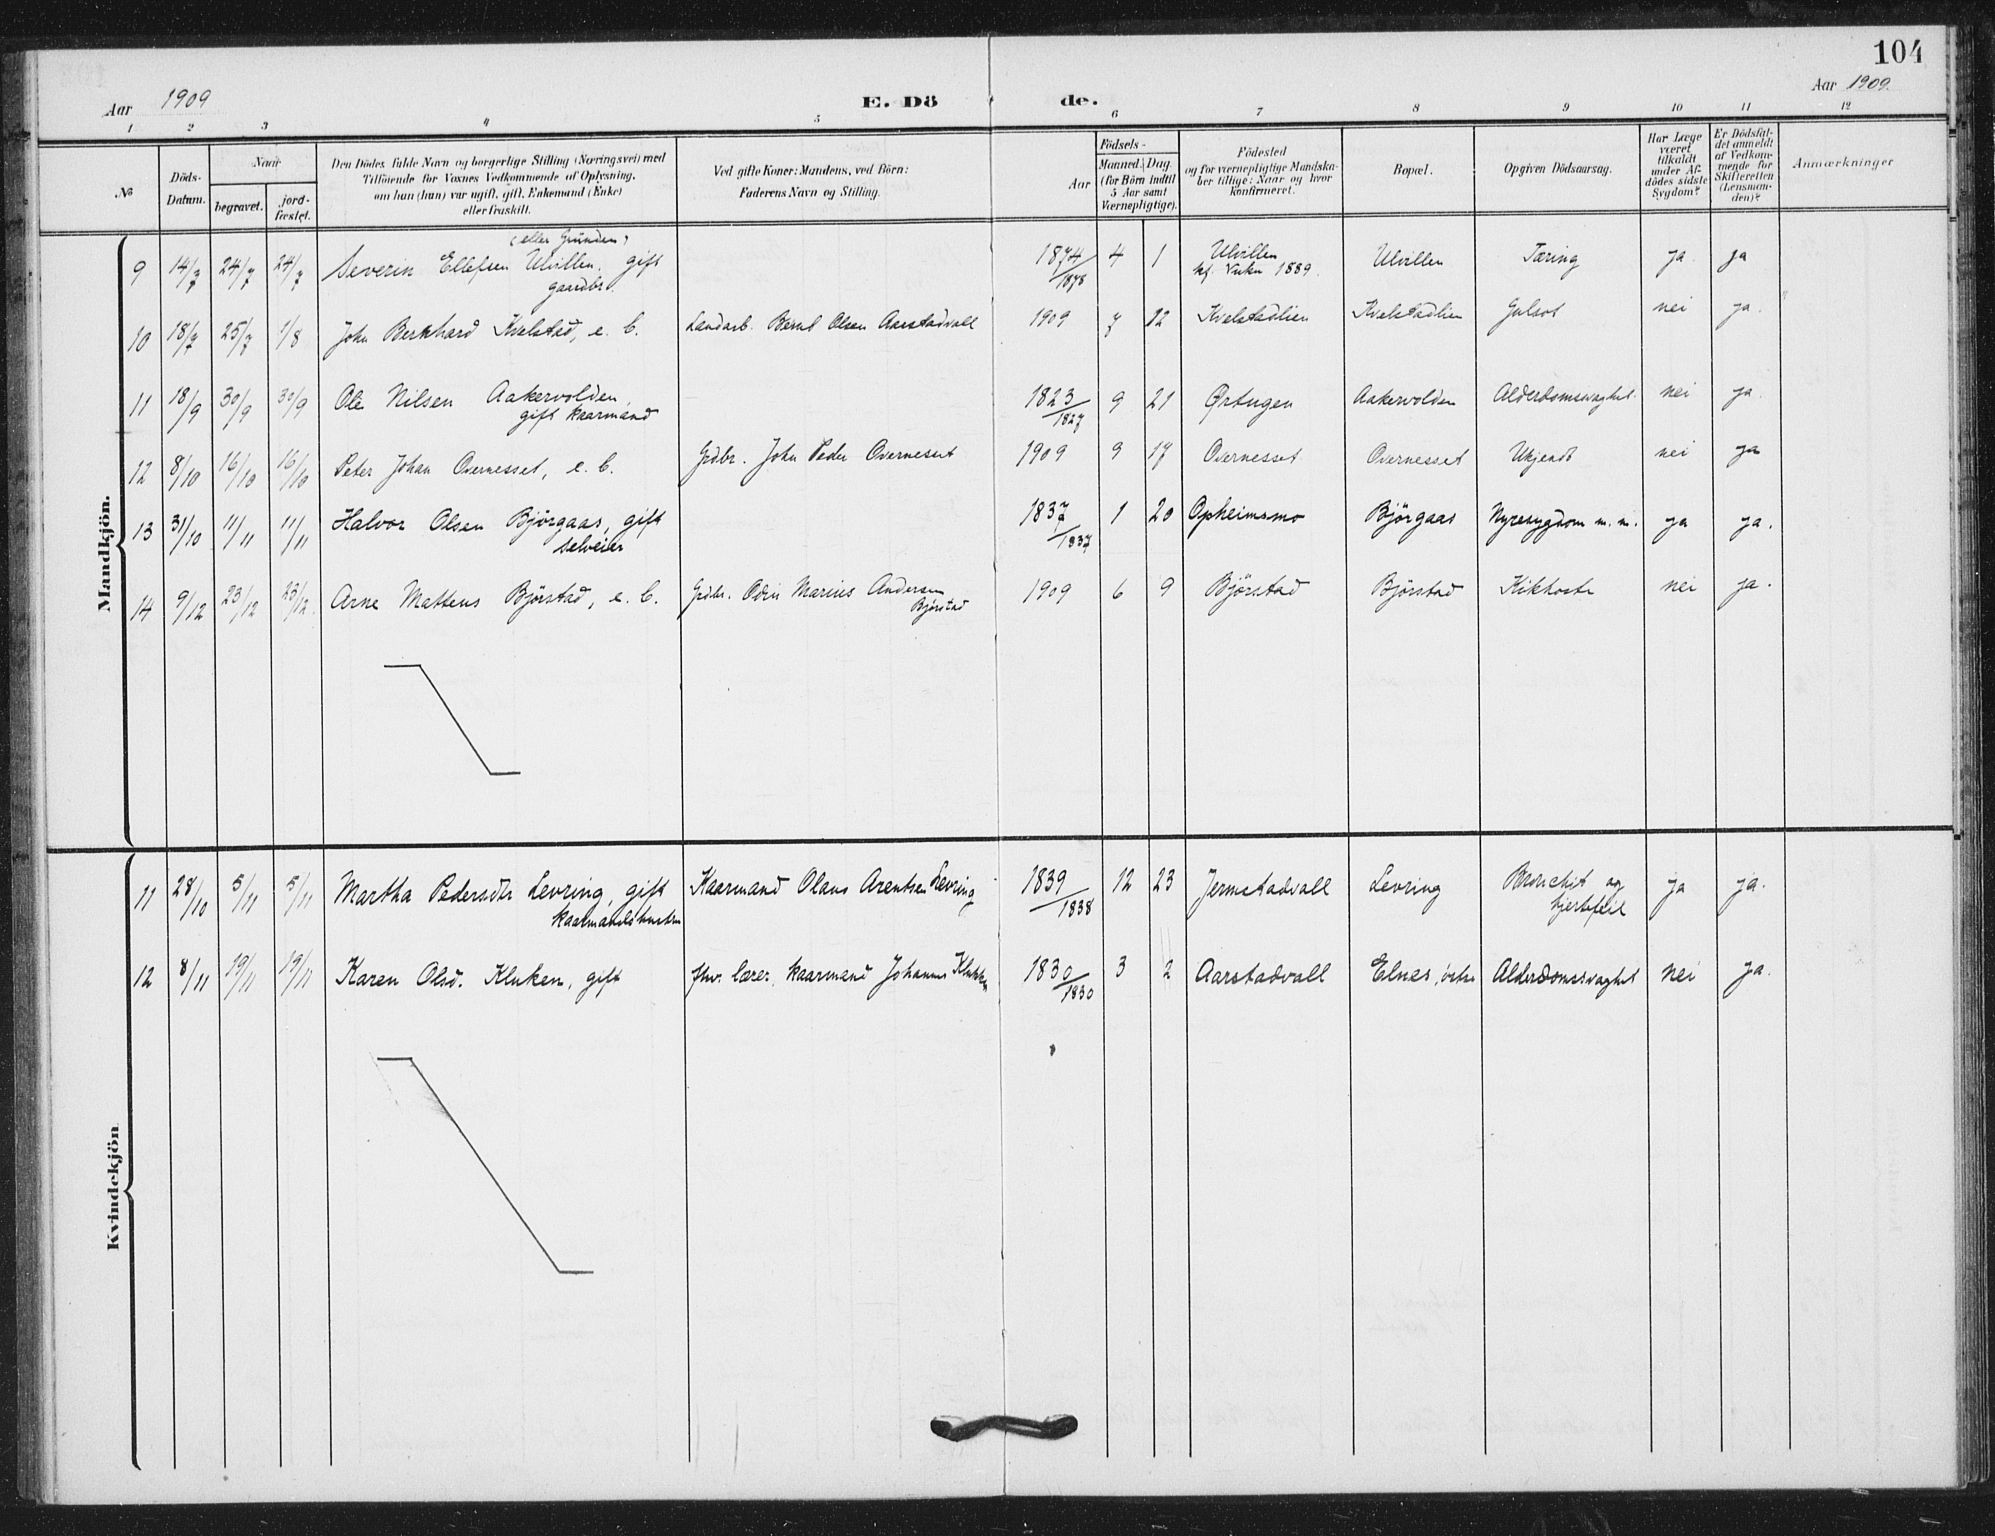 104
Aar 1909
E. Dö de.
Aar 1909.
1 2 3 4 5 6 7 8 9 10 11 12
№
Döds-
Datum.
Naar
begravet.
jord-
fæstet.
Den Dödes fulde Navn og borgerlige Stilling (Næringsvei) med
Tilföiende for Voxnes Vedkommende af Oplysning,
om han (hun) var ugift, gift, Enkemand (Enke)
eller fraskilt.
Ved gifte Koner: Mandens, ved Börn:
Faderens Navn og Stilling.
Födsels-
Aar
Maaned. Dag.
(for Börn indtil
5 Aar samt
Værnepligtige).
Födested
og for værnepligtige Mandska-
ber tillige: Naar og hvor
konfirmeret.
Bopæl.
Opgiven Dödsaarsag.
Har Læge
været
tilkaldt
under Af-
dödes sidste
Sygdom?
Er Dödsfal-
det anmeldt
af Vedkom-
mende for
Skifteretten
(Lensman-
den)?
Anmærkninger
Mandkjön.
(eller Grunden)
9 14/7 24/7 24/7 Severin Ellefsen Ulvillen, gift 1874/1878 4 1 Ulvillen Ulvillen Tæring ja ja
gaardbr. kf. Vuku 1889.
10 18/7 25/7 1/8 John Berkhard Kvelstad, e. b. Landarb. Bernt Olsen Aarstadvall 1909 7 12 Kvelstadlien Kvelstadlien Gulsot nei ja.
11 18/9 30/9 30/9 Ole Nilsen Aakervolden, 1823/1827 9 21 Ørtugen Aakervolden Alderdomssvaghet. nei ja.
gift kaarmand
12 8/10 16/10 16/10 Peter Johan Overnesset, e. b. Grdbr. John Peder Overnesset 1909 9 17 Overnesset Overnesset Ukjendt nei ja
13 31/10 11/11 11/11 Halvor Olsen Björgaas, gift 1837/1837 1 20 Opheimsmo Björgaas Nyresygdom m. m. ja ja.
selveier
14 9/12 23/12 23/12. Arne Mattens Björstad, e. b. Grdbr. Odin Marius Andersen 1909 6 9 Björstad Björstad Kikhoste nei ja.
Björstad
Kvindekjön
11 28/10 5/11 5/11 Martha Pedersdtr Levring, gift Kaarmand Olaus Arentsen Levring 1839/1838 12 23 Jermstadvall Levring Bronchit og ja ja.
kaarmandshustru hjertefeil
12 8/11 19/11 19/11 Karen Olsd. Kluken, gift fhv. lærer, kaarmand Johannes Klukken 1830/1830 3 2 Aarstadvall Elnes, östre Alderdomssvaghet nei ja.